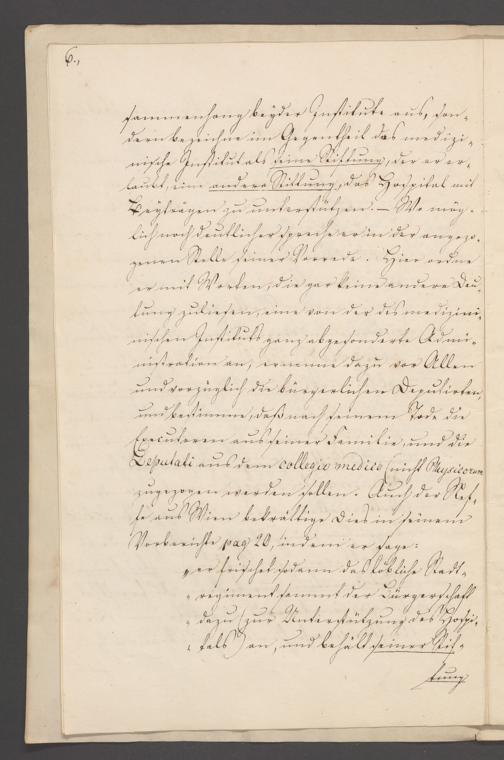 6.,
sammenhang beyder Institute aus, son-
dern bezeichne im Gegentheil das medizi-
nische Institut als seine Stiftung, der er er-
laubt, eine andere Stiftung, das Hospital mit
Beyträgen zu unterstützen. — Wo mög-
lich noch deutlicher spreche er in der angezo-
genen Stelle seiner Vorrede. Hier ordne
er mit Worten, die gar keine andere Deu-
tung zuliesen, eine von der des medizini-
nischen Instituts ganz abgesonderte Admi-
nistration an, ernenne dazu vor Allen
und vorzüglich die bürgerlichen Deputirten,
und bestimme, daß nach seinem Tode die
Executoren aus seiner Familie, und die
Deputati aus dem collegio medico (nicht Physicorum
zugezogen werden sollen. Auch der Nef-
fe aus Wien bekräftige dies in seinem
Vorberichte pag 20, indem er sage:
„er frischet sodann das löbliche Stadt-
„regiment sammt der Bürgerschaft
„dazu (zur Unterstützung des Hospi-
„tals) an, und behält seiner Stif-
tung